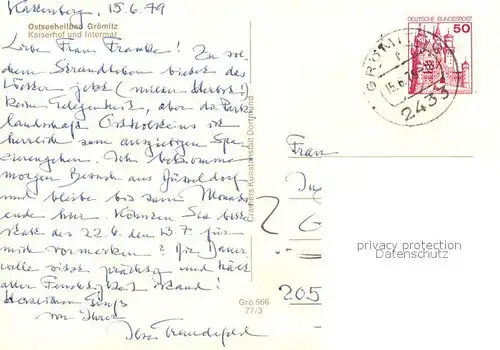 Kattenberg, 15.6.79
Ostseeheilbad Grömitz
Kaiserhof und Intermar
Liebe Frau Franke! Zu sol-
chem Strandleben bietet das
Wetter jetzt (mieser Herbst!)
keine Gelegenheit, aber die Park-
landschaft Ostholsteins ist
herrlich zum ausgiebigen Spa-
zierengehen. Ich bekomme
morgen Besuch aus Düsseldorf
und bleibe bis zum Monats-
ende hier. Können Sie bitte
den 22.6. den 13.7. für
mich vormerken? Die Dauer-
welle sitzt prächtig und hält
aller Feuchtigkeit stand!
Herzlichen Gruß
von Ihrer
Cramers Kunstanstalt Dortmund
Grö 566
77/3
DEUTSCHE BUNDESPOST
50
GRÖMITZ
15.6.79
2433
Frau
205
privacy protection
Datenschutz